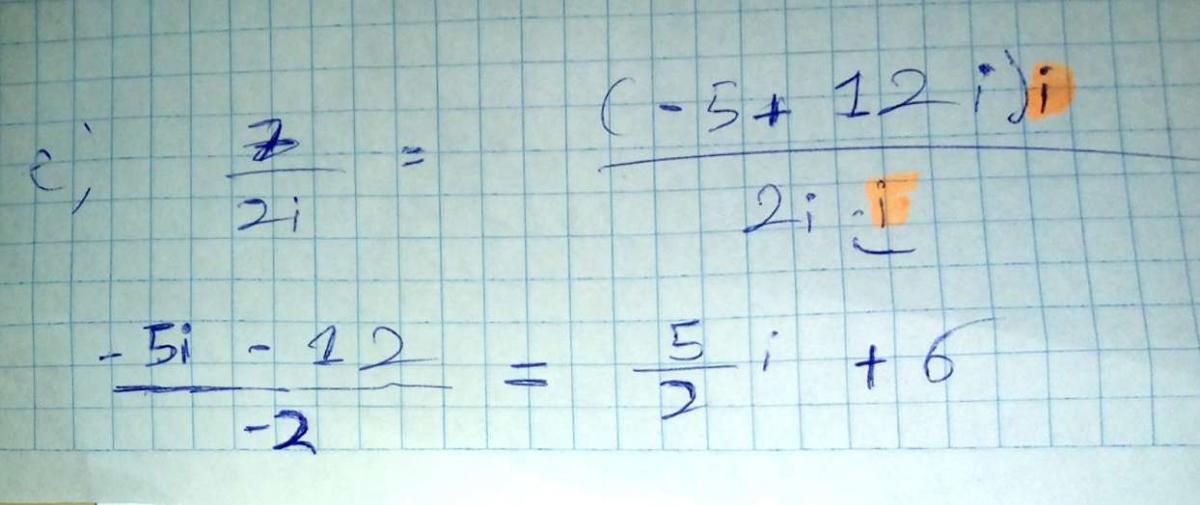 c) z/2i = (-5 + 12i)i / 2i · i
-5i - 12 / -2 = 5/2 i + 6